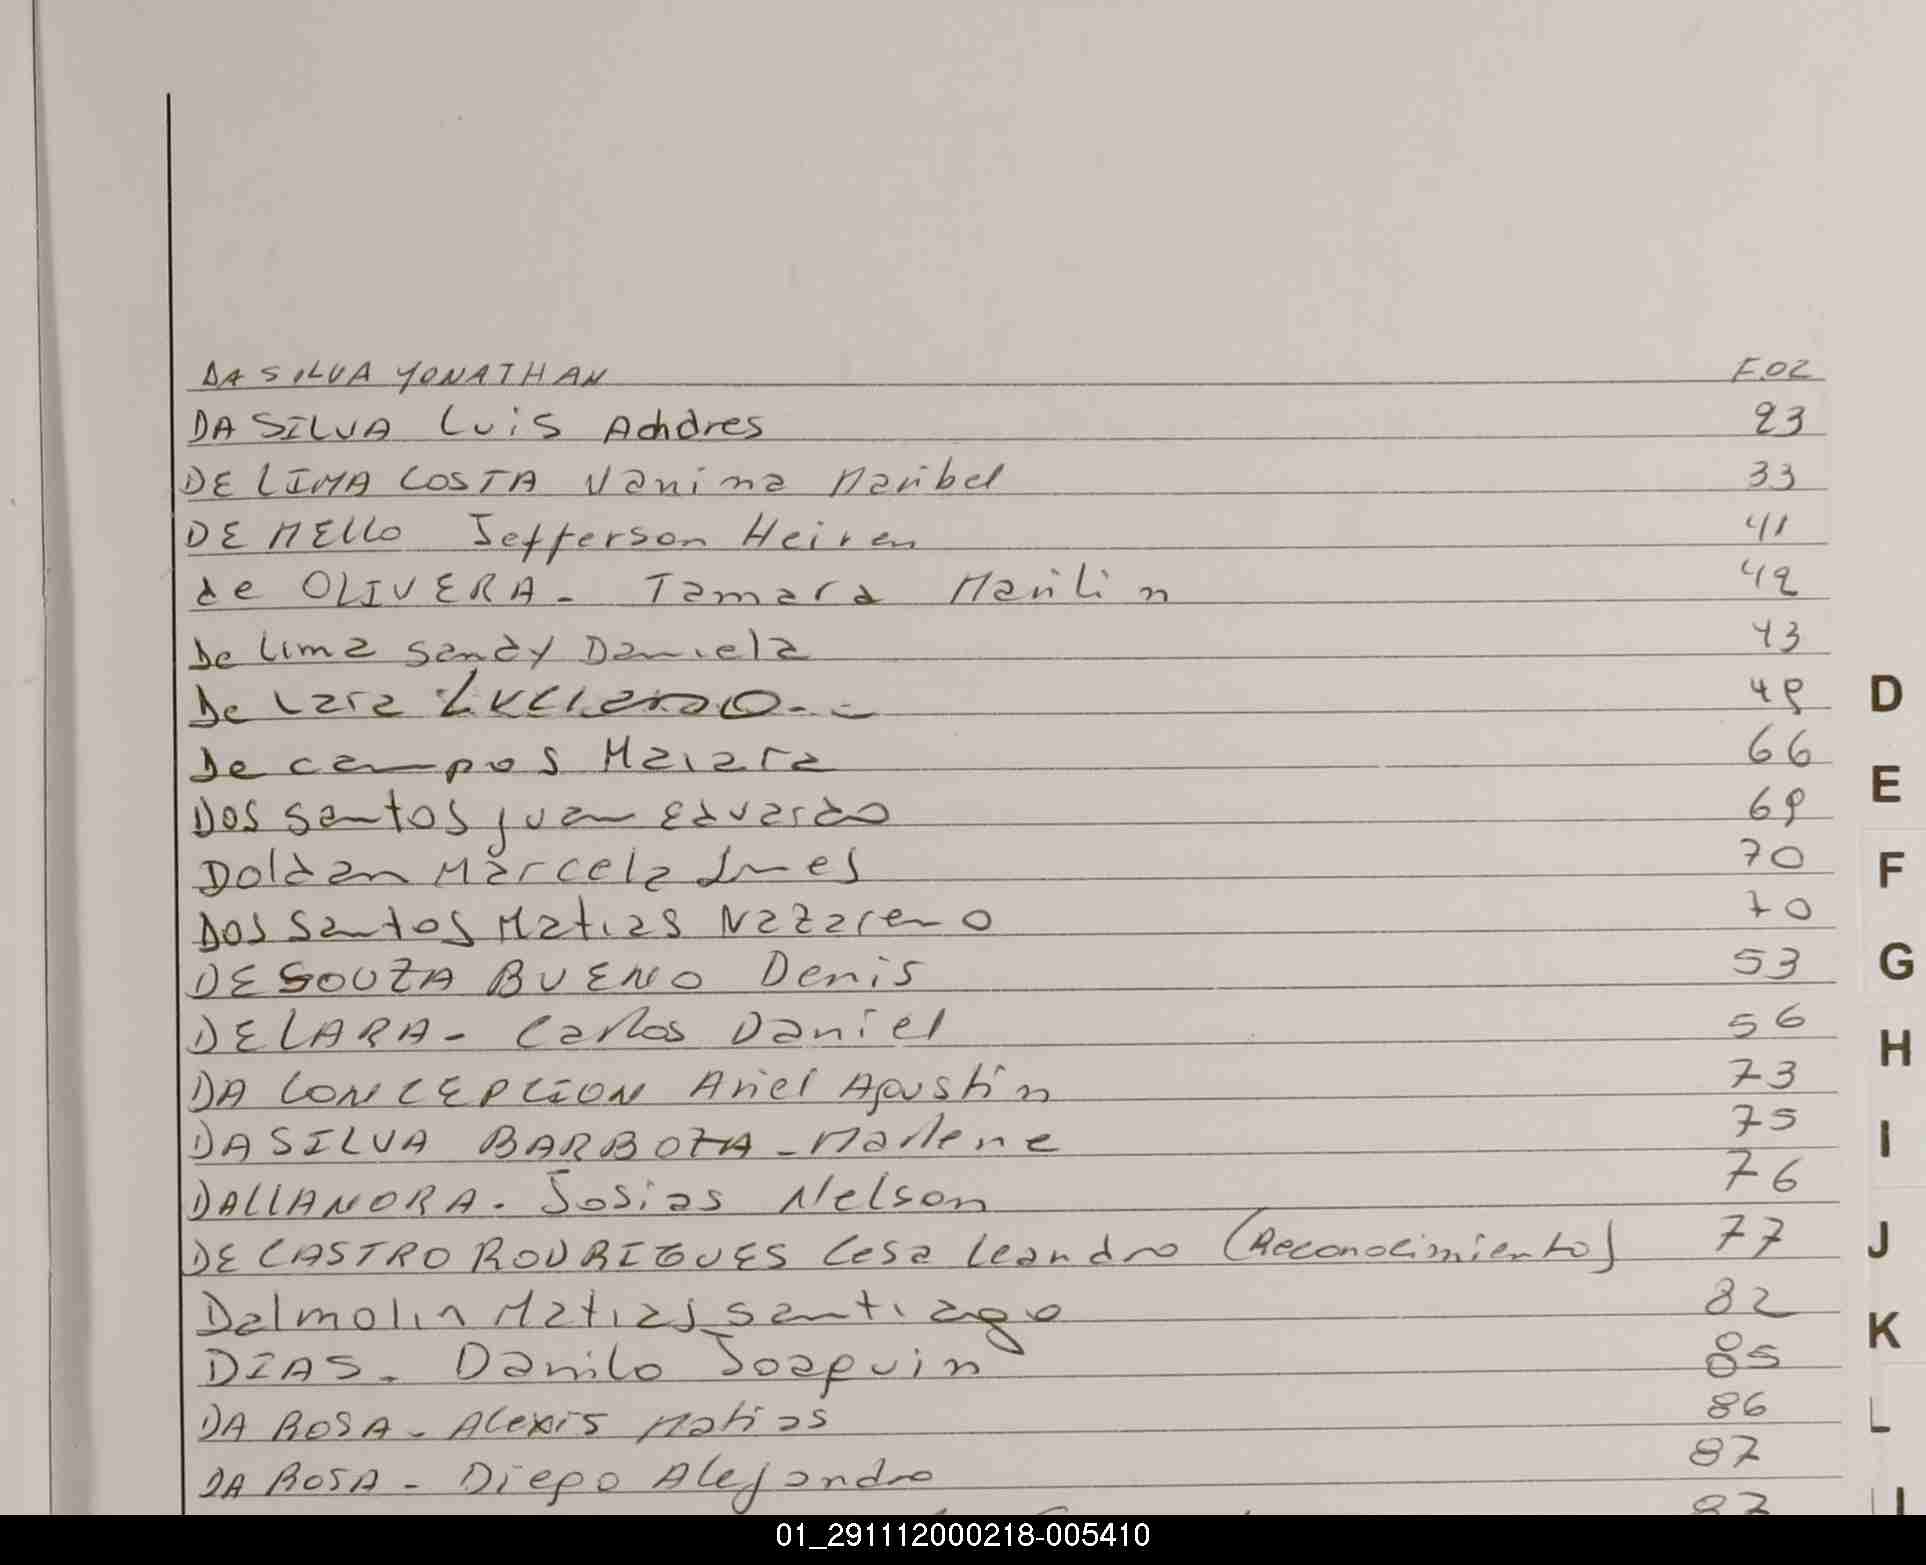 DA SILVA YONATHAN F.02
DA SILVA Luis Andres 23
DE LIMA COSTA Vanina Maribel 33
DE MELLO Jefferson Heiren 41
de OLIVERA - Tamara Marilin 42
De Lima Sandy Daniela 43
De Lara Luciano - - 49
De campos Maiara 66
Dos santos juan Eduardo 69
Doldan Marcela Ines 70
Dos santos Matias Nazareno 70
DE SOUZA BUENO Denis 53
DE LARA - Carlos Daniel 56
DA CONCEPCION Ariel Agustin 73
DA SILVA BARBOZA - Marlene 75
DALLANORA - Josias Nelson 76
DE CASTRO RODRIGUES Cesa Leandro (Reconocimiento) 77
Dalmolin Matias santiago 82
DIAS - Danilo Joaquin 85
DA ROSA - Alexis Matias 86
DA ROSA - Diego Alejandro 87
D
E
F
G
H
I
J
K
L
01_291112000218-005410